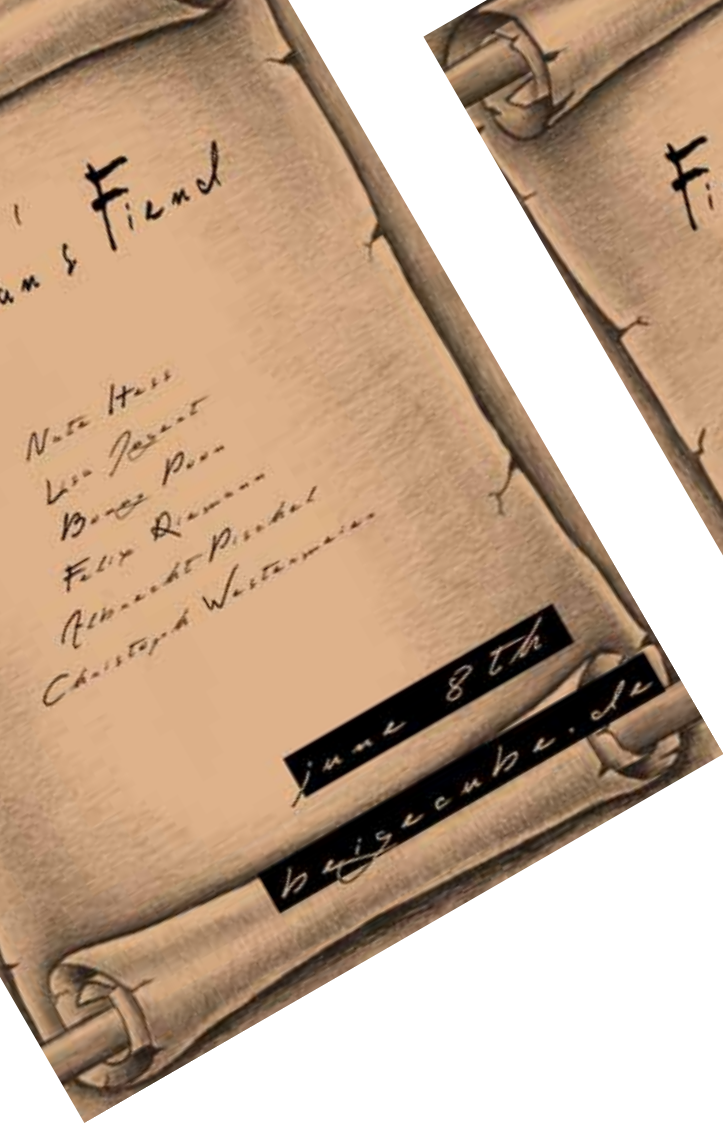 Fiend
an &
Nate Hess
Lisa
Bongo Poon
Felix Riemann
Albrecht Pischel
Christoph Westermeier
june 8th
beigecube.de
Fi